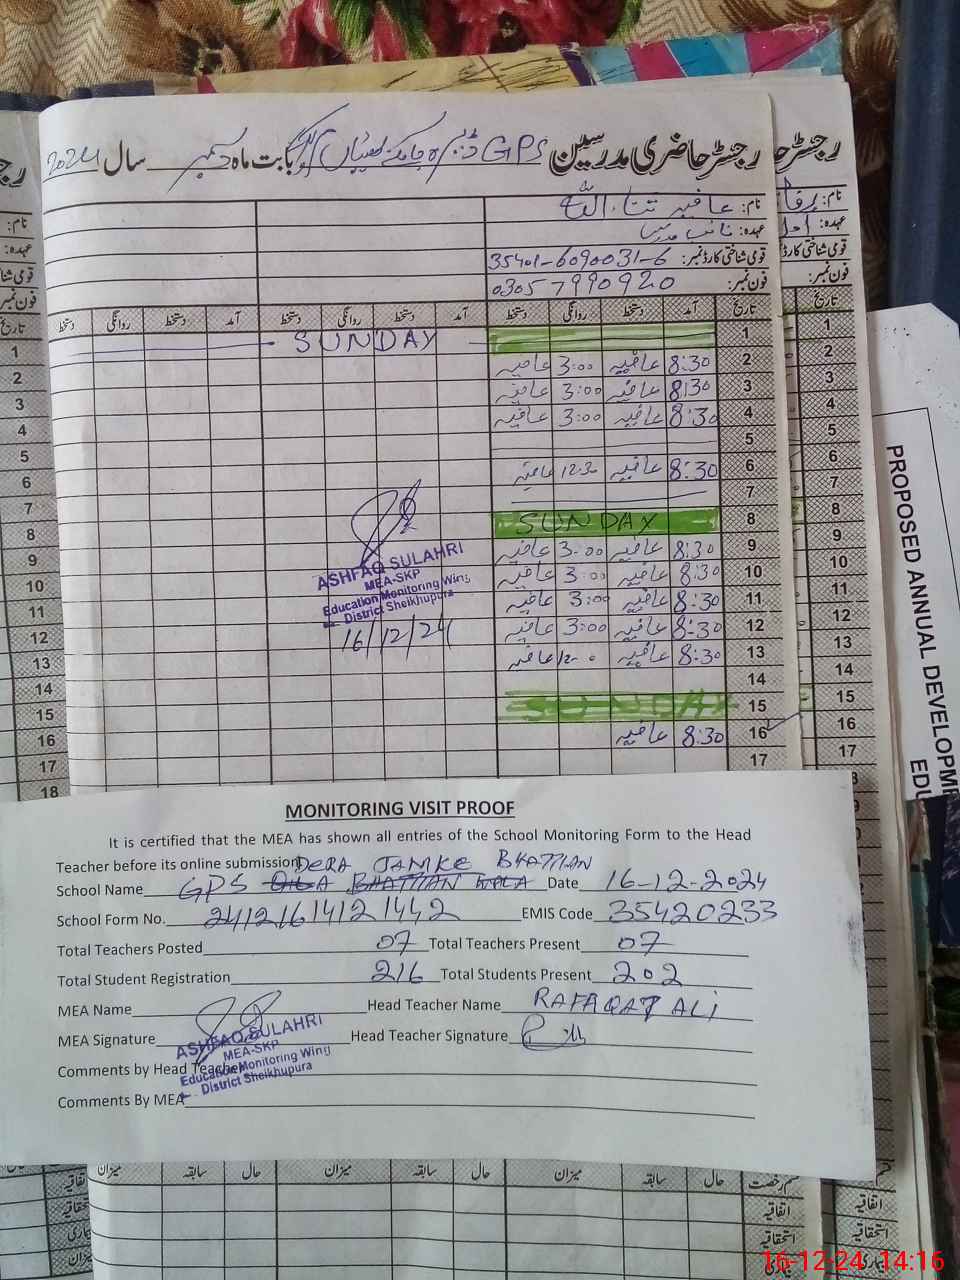 رجسٹر حاضری مدرسین GPS ڈیرہ جامکے بھٹیاں بابت ماہ دسمبر سال 2024
نام: عافیہ ثناء اللہ
عہدہ: نائب مدرس
قومی شناختی کارڈ نمبر: 35401-6090031-6
فون نمبر: 0305 7990920
تاریخ آمد دستخط روانگی دستخط آمد دستخط روانگی دستخط
1 SUNDAY
2 8:30 عافیہ 3:00 عافیہ
3 8:30 عافیہ 3:00 عافیہ
4 8:30 عافیہ 3:00 عافیہ
5
6 8:30 عافیہ 12:30 عافیہ
7
8 SUNDAY
9 8:30 عافیہ 3:00 عافیہ
10 8:30 عافیہ 3:00 عافیہ
11 8:30 عافیہ 3:00 عافیہ
12 8:30 عافیہ 3:00 عافیہ
13 8:30 عافیہ عافیہ
14
15 SUNDAY
16 8:30 عافیہ
17
ASHFAQ SULAHRI
MEA-SKP
Education Monitoring Wing
District Sheikhupura
16/12/24
PROPOSED ANNUAL DEVELOPME
EDU
MONITORING VISIT PROOF
It is certified that the MEA has shown all entries of the School Monitoring Form to the Head
Teacher before its online submission DERA JAMKE BHATTIAN
School Name GPS BHATTIAN WALA Date 16-12-2024
School Form No. 24121614121442 EMIS Code 35420233
Total Teachers Posted 07 Total Teachers Present 07
Total Student Registration 216 Total Students Present 202
MEA Name Head Teacher Name RAFAQAT ALI
MEA Signature Head Teacher Signature
ASHFAQ SULAHRI
MEA-SKP
Education Monitoring Wing
District Sheikhupura
Comments by Head Teacher
Comments By MEA
قسم رخصت حال سابقہ میزان حال سابقہ میزان
اتفاقیہ
استحقاقیہ
16-12-24 14:16